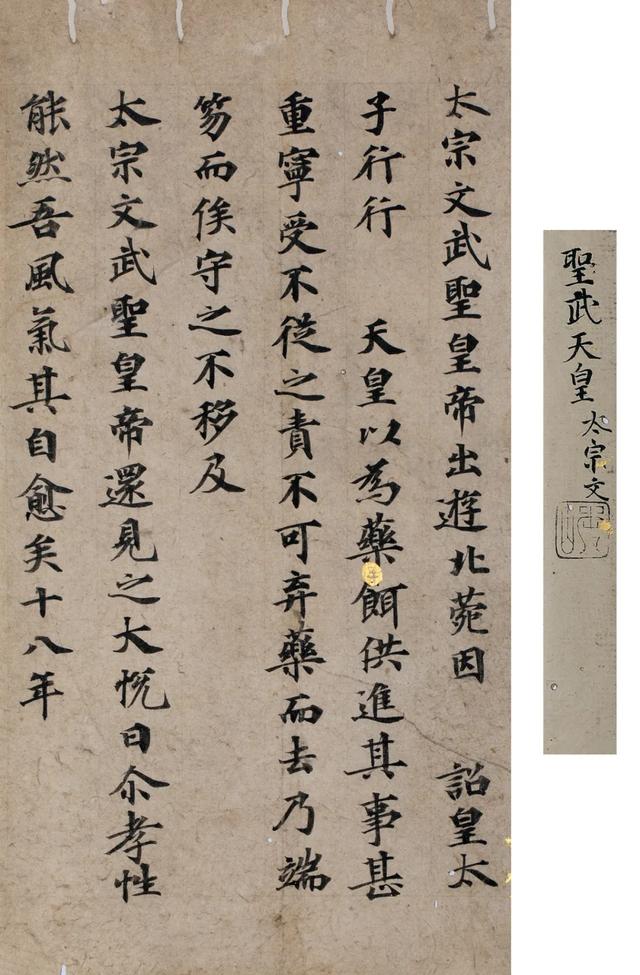 太宗文武聖皇帝出遊北菀因　詔皇太
子行行　天皇以為藥餌供進其事甚
重寧受不從之責不可弃藥而去乃端
笏而俟守之不移及
太宗文武聖皇帝還見之大悅曰尒孝性
能然吾風氣其自愈矣十八年
聖武天皇 太宗文